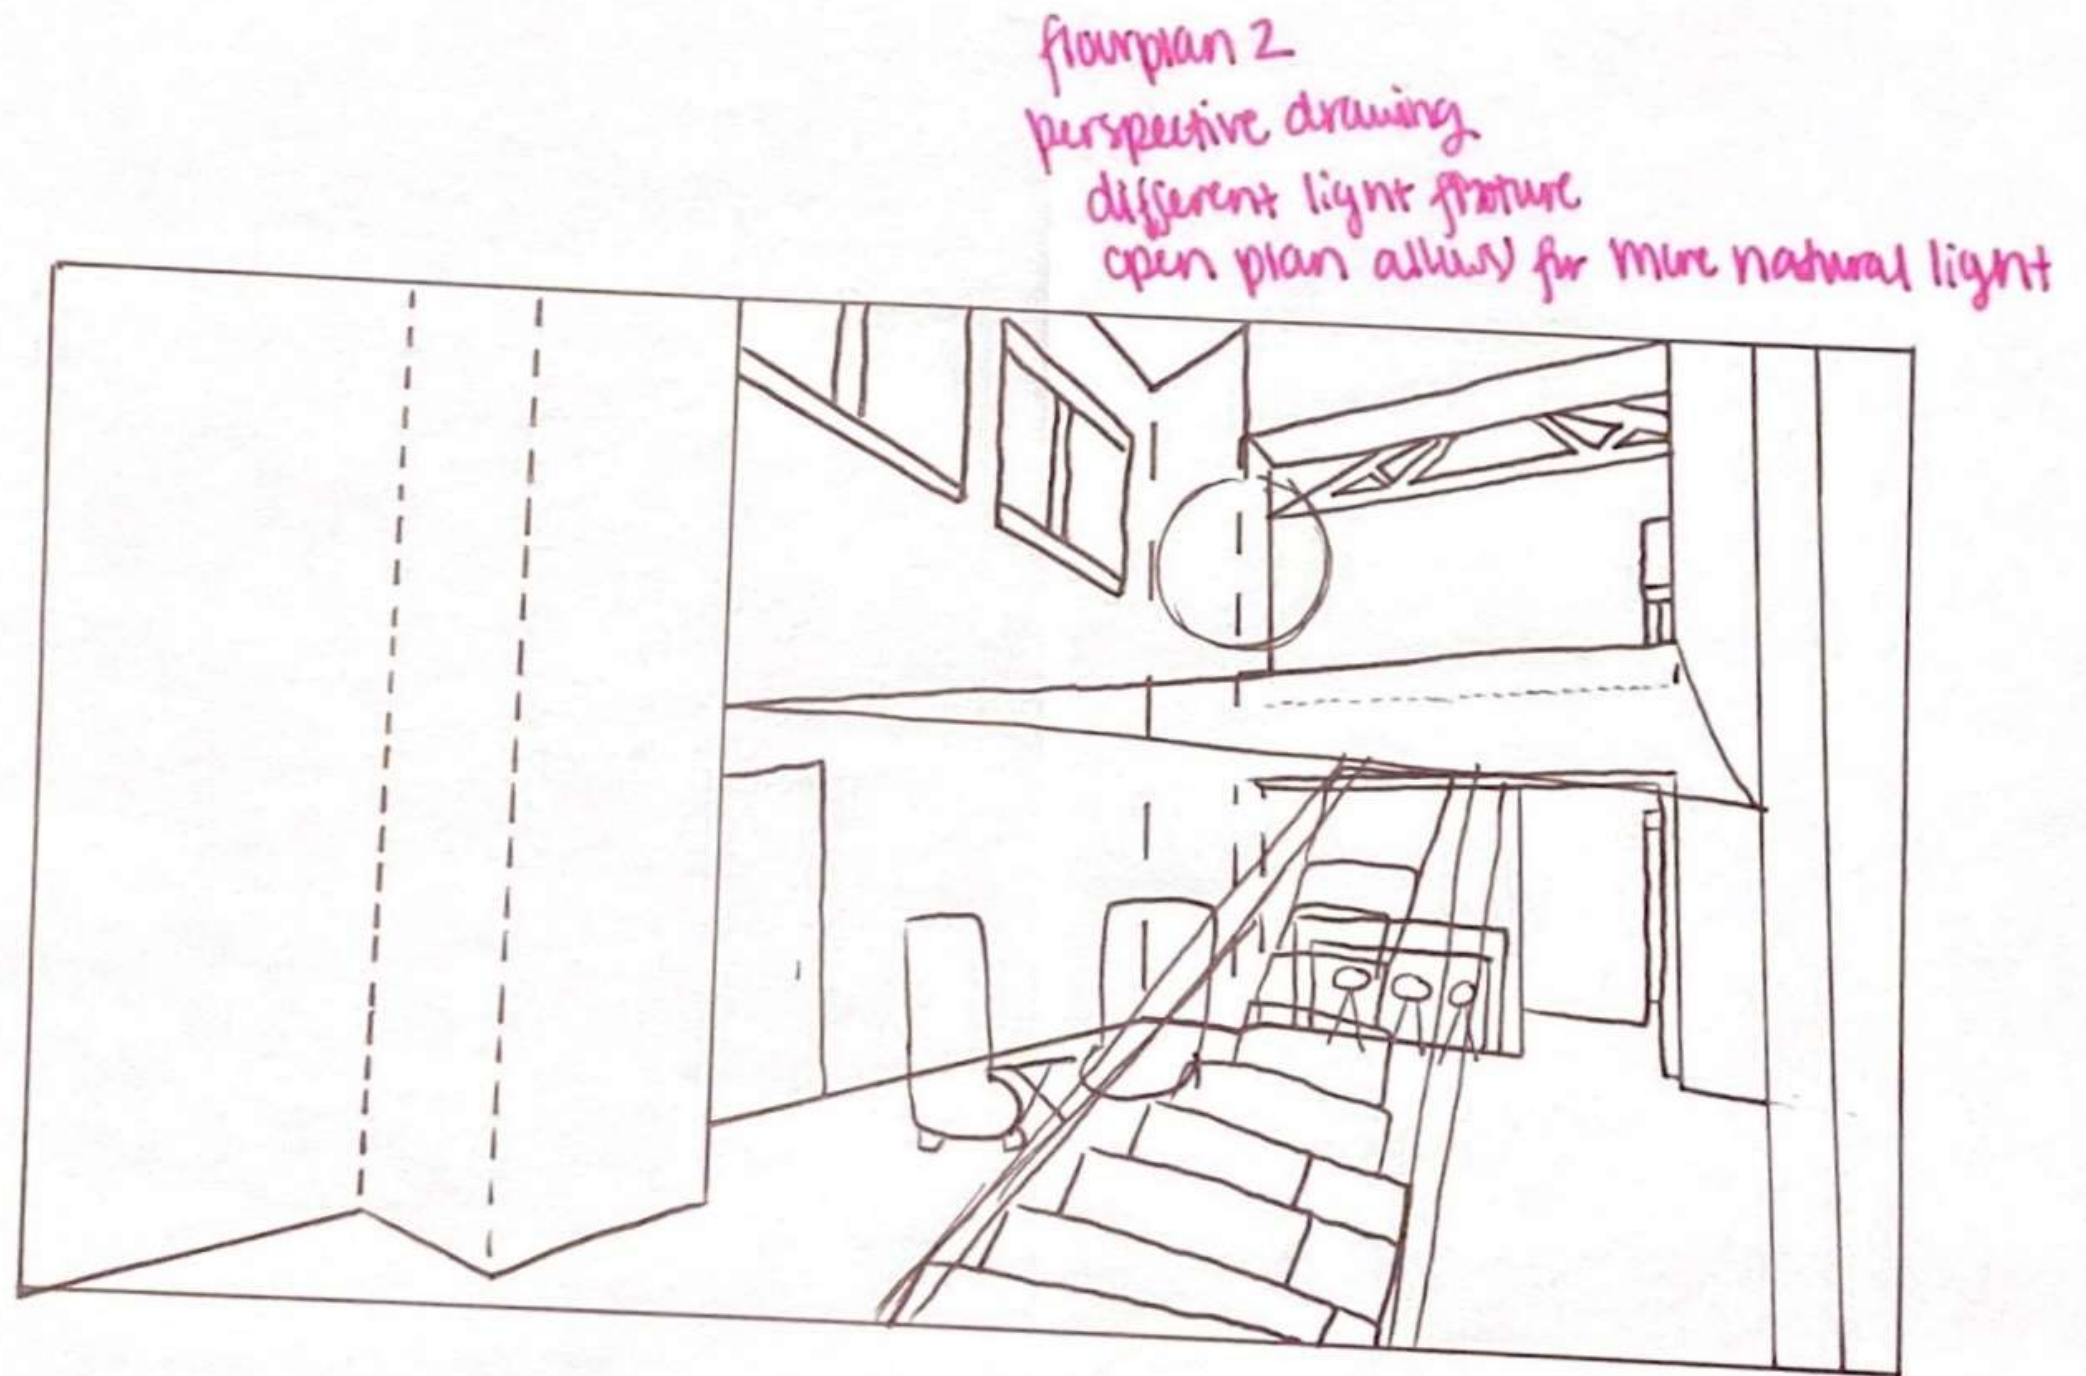 floorplan 2
perspective drawing
different light fixture
open plan allows for more natural light